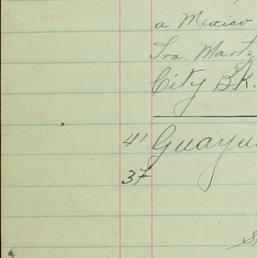 a Mexico
Fra. Martz
City BK.
41 Guayu
37
S